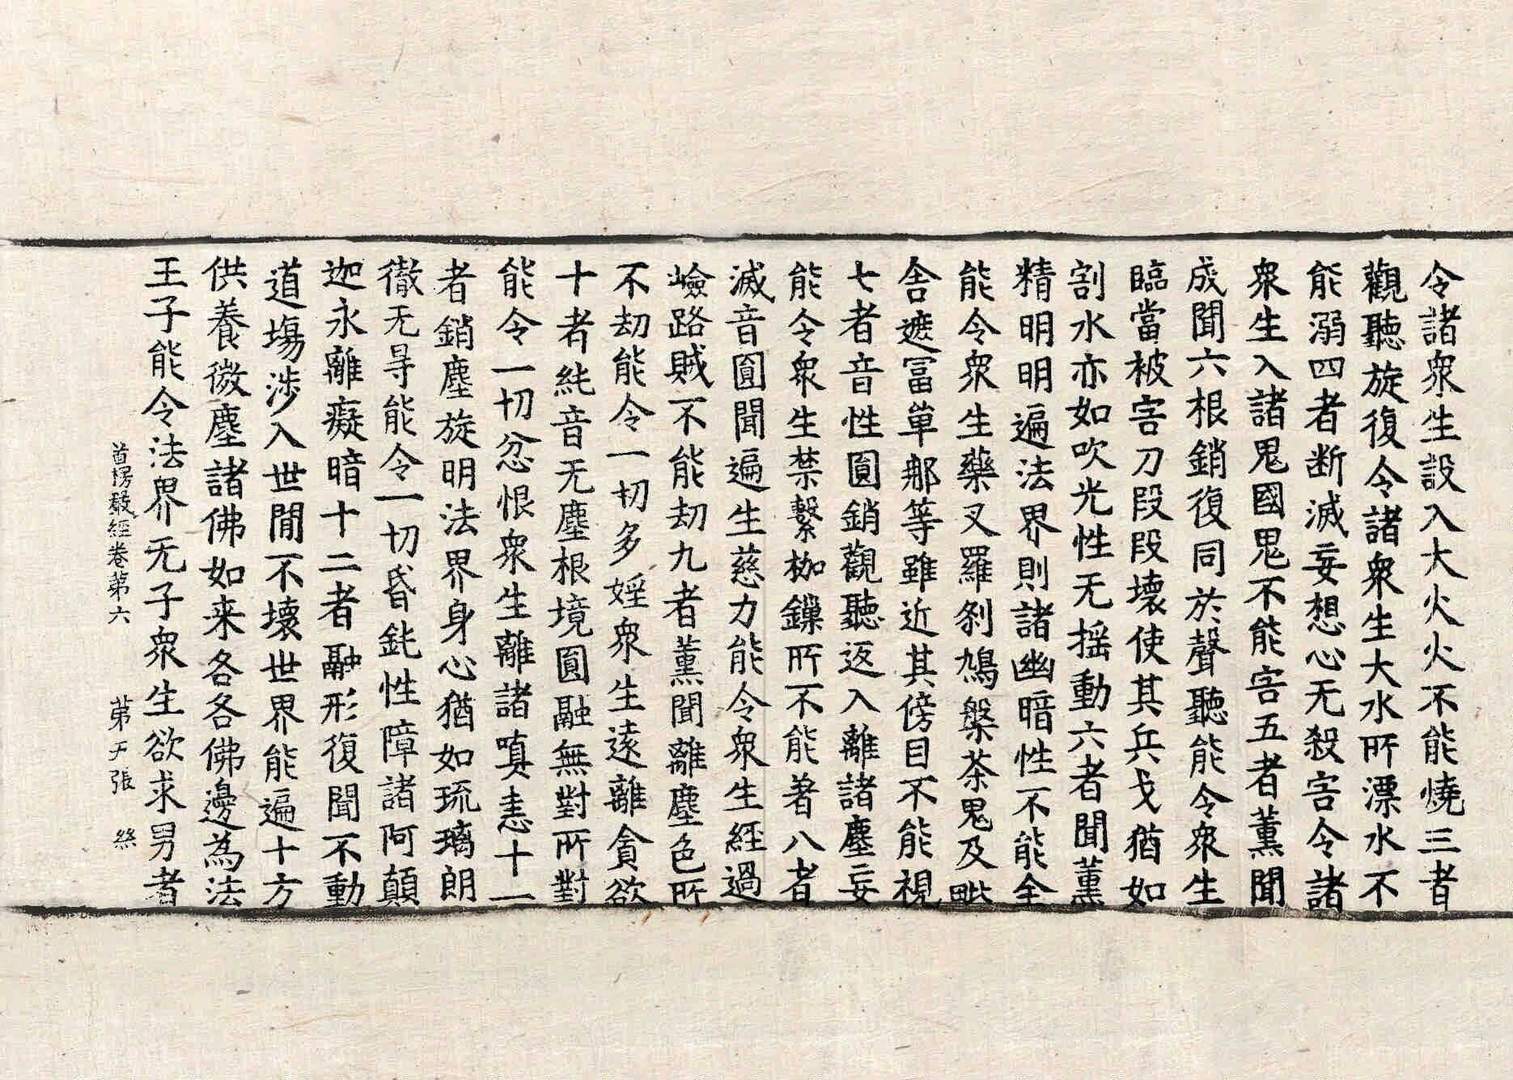 令諸衆生設入大火火不能燒三者
觀聽旋復令諸衆生大水所漂水不
能溺四者断滅妄想心无殺害令諸
衆生入諸鬼國鬼不能害五者薫聞
成聞六根銷復同於聲聽能令衆生
臨當被害刀段段壞使其兵戈猶如
割水亦如吹光性无揺動六者聞薫
精明明遍法界則諸幽暗性不能全
能令衆生藥叉羅刹鳩槃茶鬼及毗
舎遮冨單那等雖近其傍目不能視
七者音性圎銷觀聽返入離諸塵妄
能令衆生禁繫枷鏁所不能著八者
滅音圎聞遍生慈力能令衆生經過
嶮路賊不能劫九者薫聞離塵色所
不劫能令一切多婬衆生逺離貪欲
十者純音无塵根境圎融無對所對
能令一切忿恨衆生離諸嗔恚十一
者銷塵旋明法界身心猶如琉璃朗
徹无㝵能令一切昏鈍性障諸阿顛
迦永離癡暗十二者融形復聞不動
道塲渉入世閒不壞世界能遍十方
供養微塵諸佛如来各各佛邊為法
王子能令法界无子衆生欲求男者
首楞嚴經卷第六 苐 張